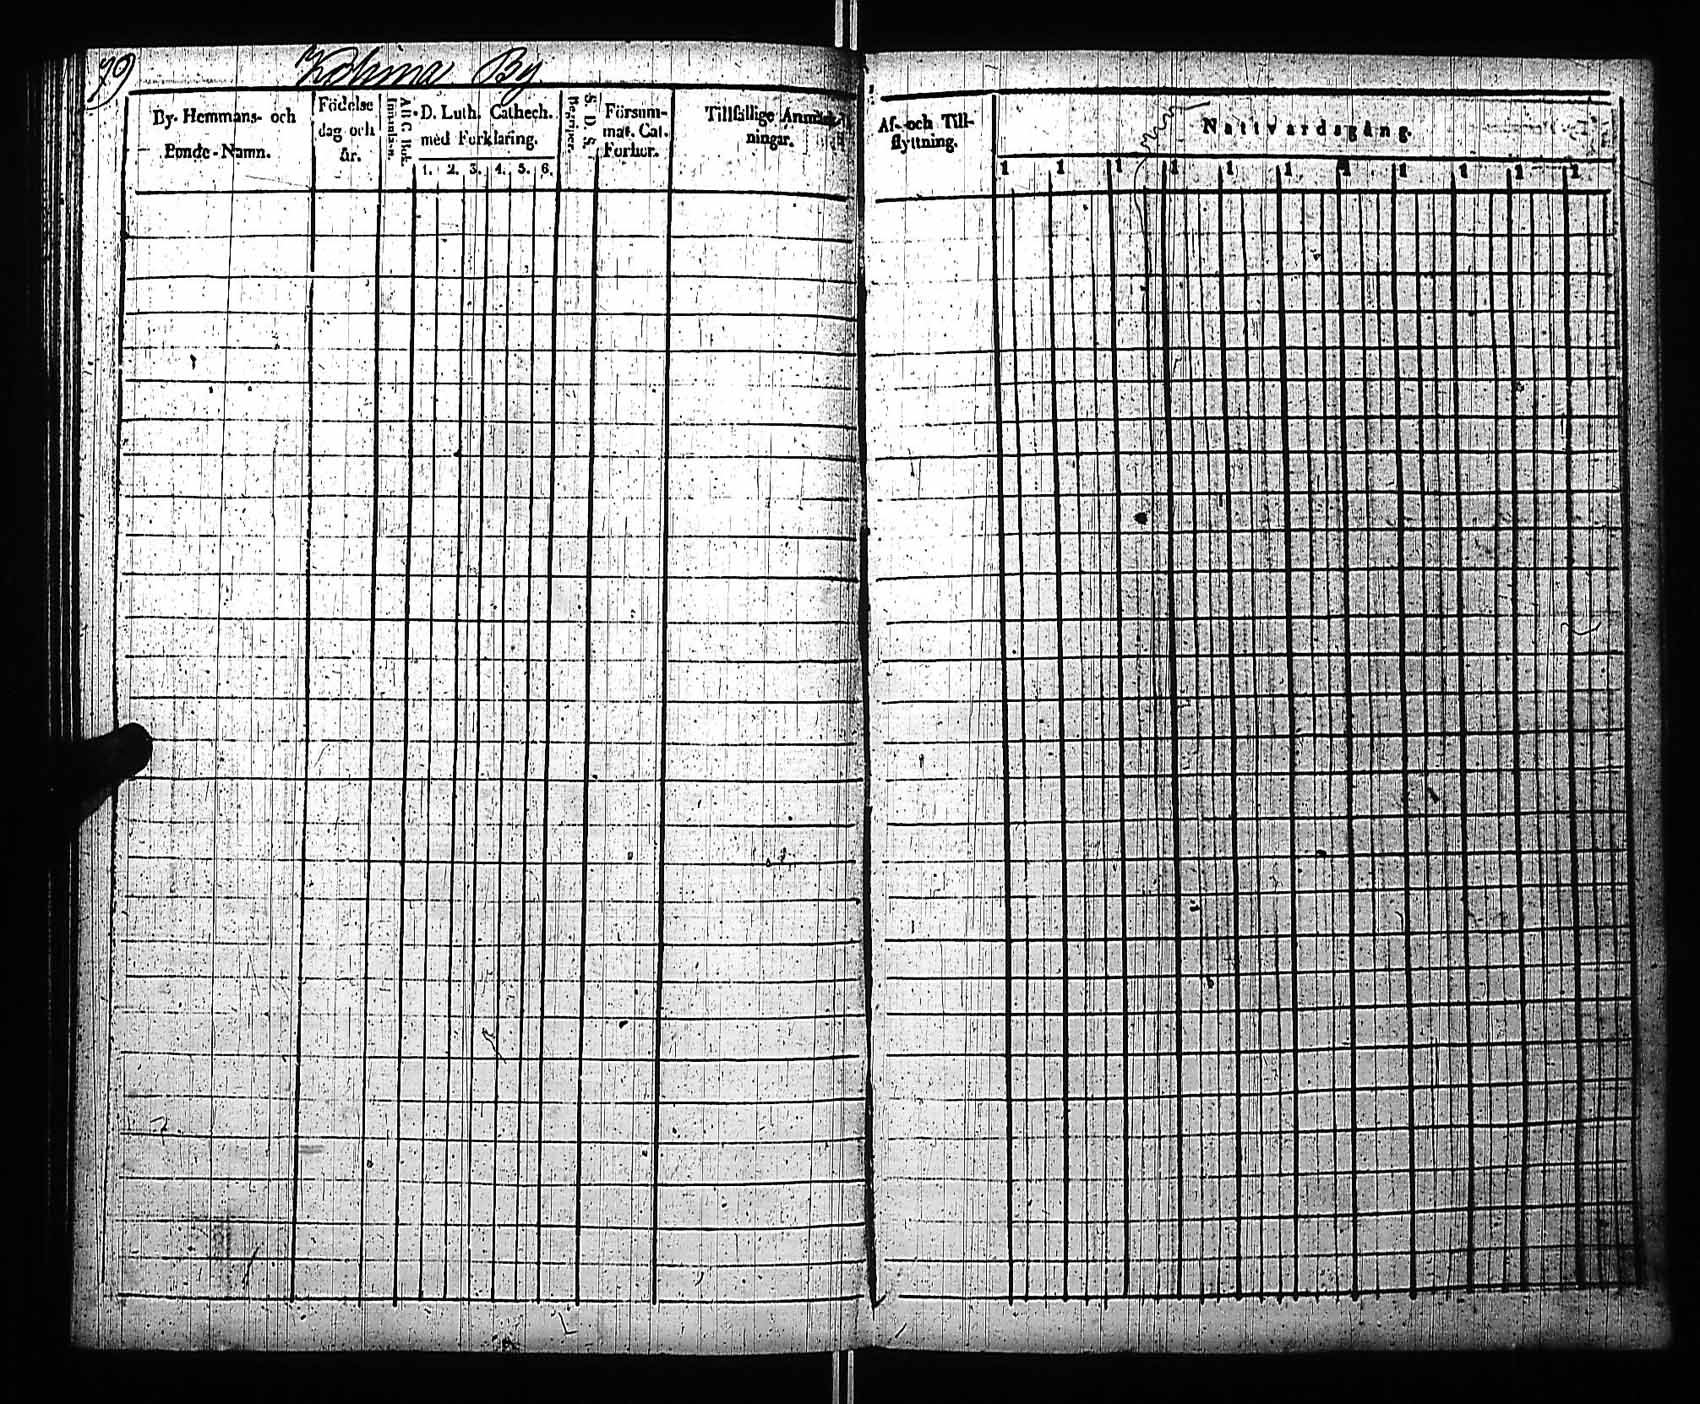 79 Kohma By
By- Hemmans- och
Bonde-Namn.
Födelse
dag och
år.
A B C Bok
Innanläsn.
D. Luth. Cathech.
med Förklaring.
1. 2. 3. 4. 5. 6.
S. D. S.
Begriper.
Försum-
mat. Cat.
Förhör.
Tillfällige Anmärk-
ningar.
Af- och Till-
flyttning.
Nattvardsgång.
1 1 1 1 1 1 1 1 1 1 1